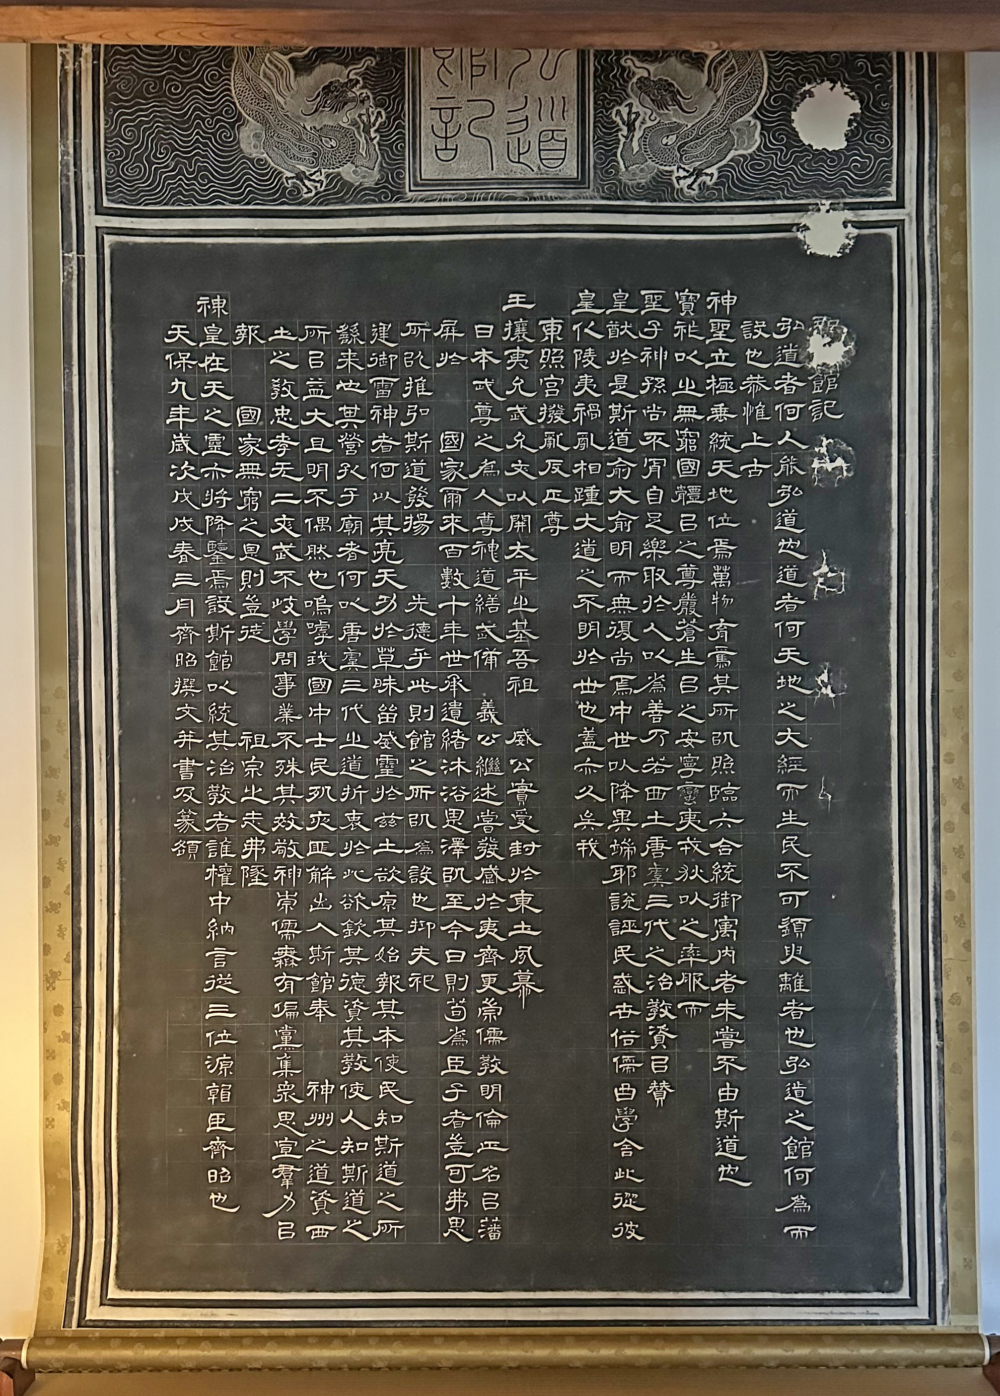 弘道
館記
館記
弘道者何人能弘道也道者何天地之大經而生民不可須臾離者也弘道之館何爲而
設也恭惟上古
神聖立極垂統天地位焉萬物育焉其所以照臨六合統御寓内者未嘗不由斯道也
寶祚以之無窮國體以之尊嚴蒼生以之安寧蠻夷戎狄以之率服而
聖子神孫尚不肯自足樂取於人以爲善乃若西土唐虞三代之治敎資以賛
皇猷於是斯道兪大兪明而無復尚焉中世以降異端邪說誣民惑世俗儒曲學舍此從彼
皇化陵夷禍亂相踵大道之不明於世也蓋亦久矣我
東照宮撥亂反正尊
王攘夷允武允文以開太平之基吾祖　威公實受封於東土夙慕
日本武尊之爲人尊神道繕武備　義公繼述嘗發感於夷齊更崇儒敎明倫正名以藩
屏於　國家爾來百數十年世承遺緒沐浴恩澤以至今日則苟爲臣子者豈可弗思
所以推弘斯道發揚　先德乎此則館之所以爲設也抑夫祀
建御雷神者何以其亮天功於草昧留威靈於茲土欲原其始報其本使民知斯道之所
繇來也其營孔子廟者何以唐虞三代之道折衷於此欲欽其德資其敎使人知斯道之
所以益大且明不偶然也嗚嘑我國中士民夙夜匪解出入斯館奉　神州之道資西
土之敎忠孝无二文武不岐學問事業不殊其效敬神崇儒無有偏黨集衆思宣羣力以
報　國家無窮之恩則豈徒　祖宗之志弗墜
神皇在天之靈亦將降鑒焉設斯館以統其治敎者誰權中納言從三位源朝臣齊昭也
天保九年歲次戊戌春三月齊昭撰文并書及篆額